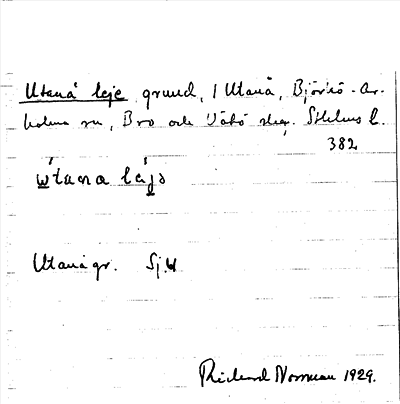 Utanå leje grund, / Utanå, Björkö-Ar-
holma sn, Bro och Vätö skg. Sthlms l.
382
Utanå gr. Sj.k
Rickard Norrman 1929.